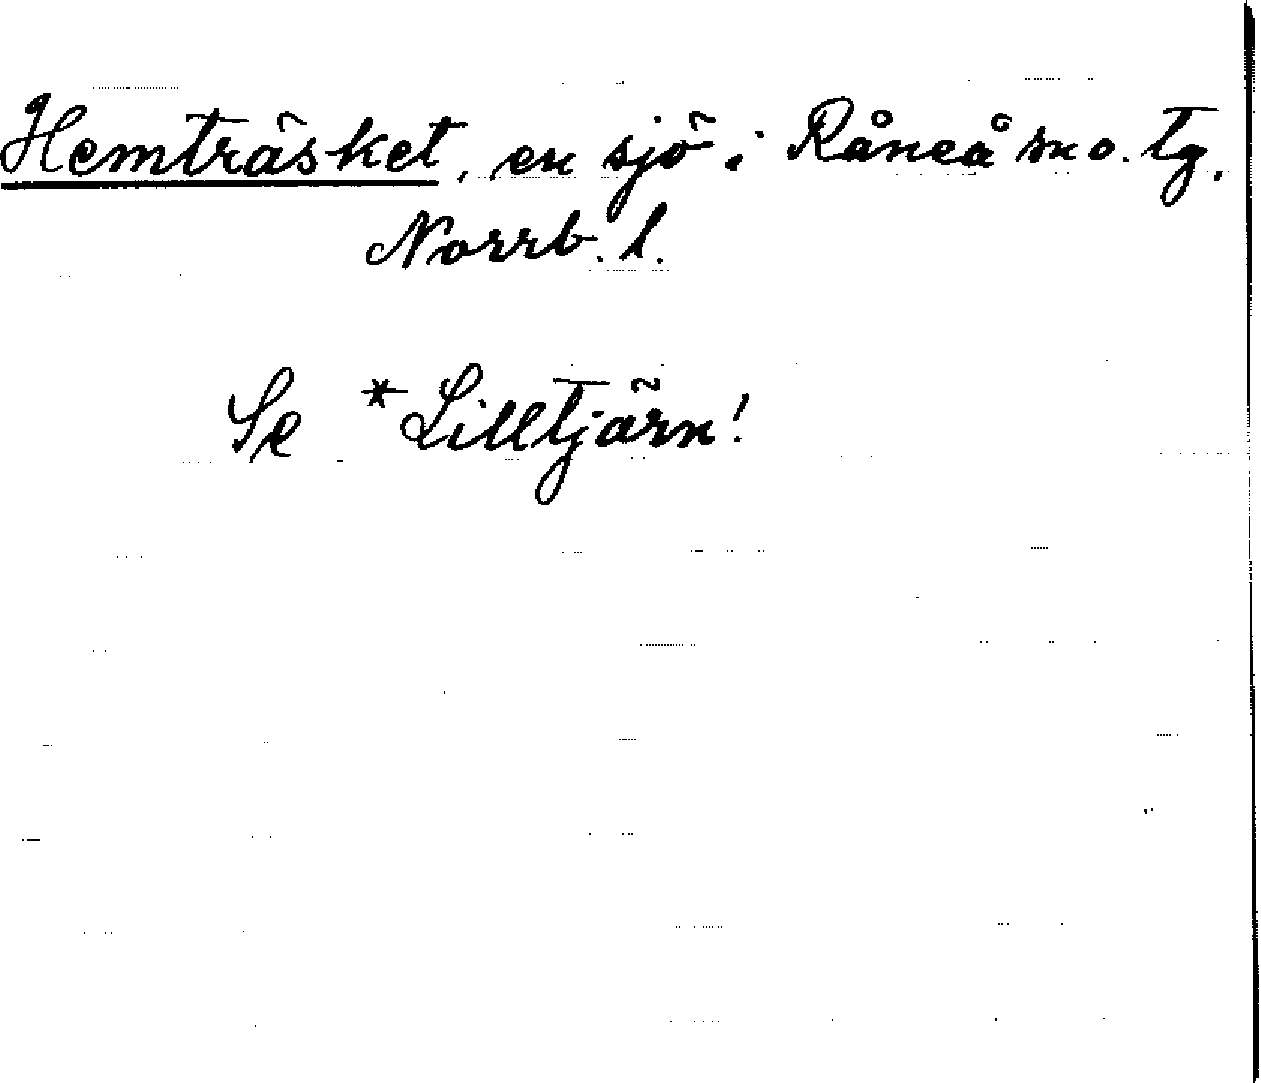 Hemträsket, en sjö i Råneå sn o. tg,
Norrb. l.
Se *Lilltjärn!